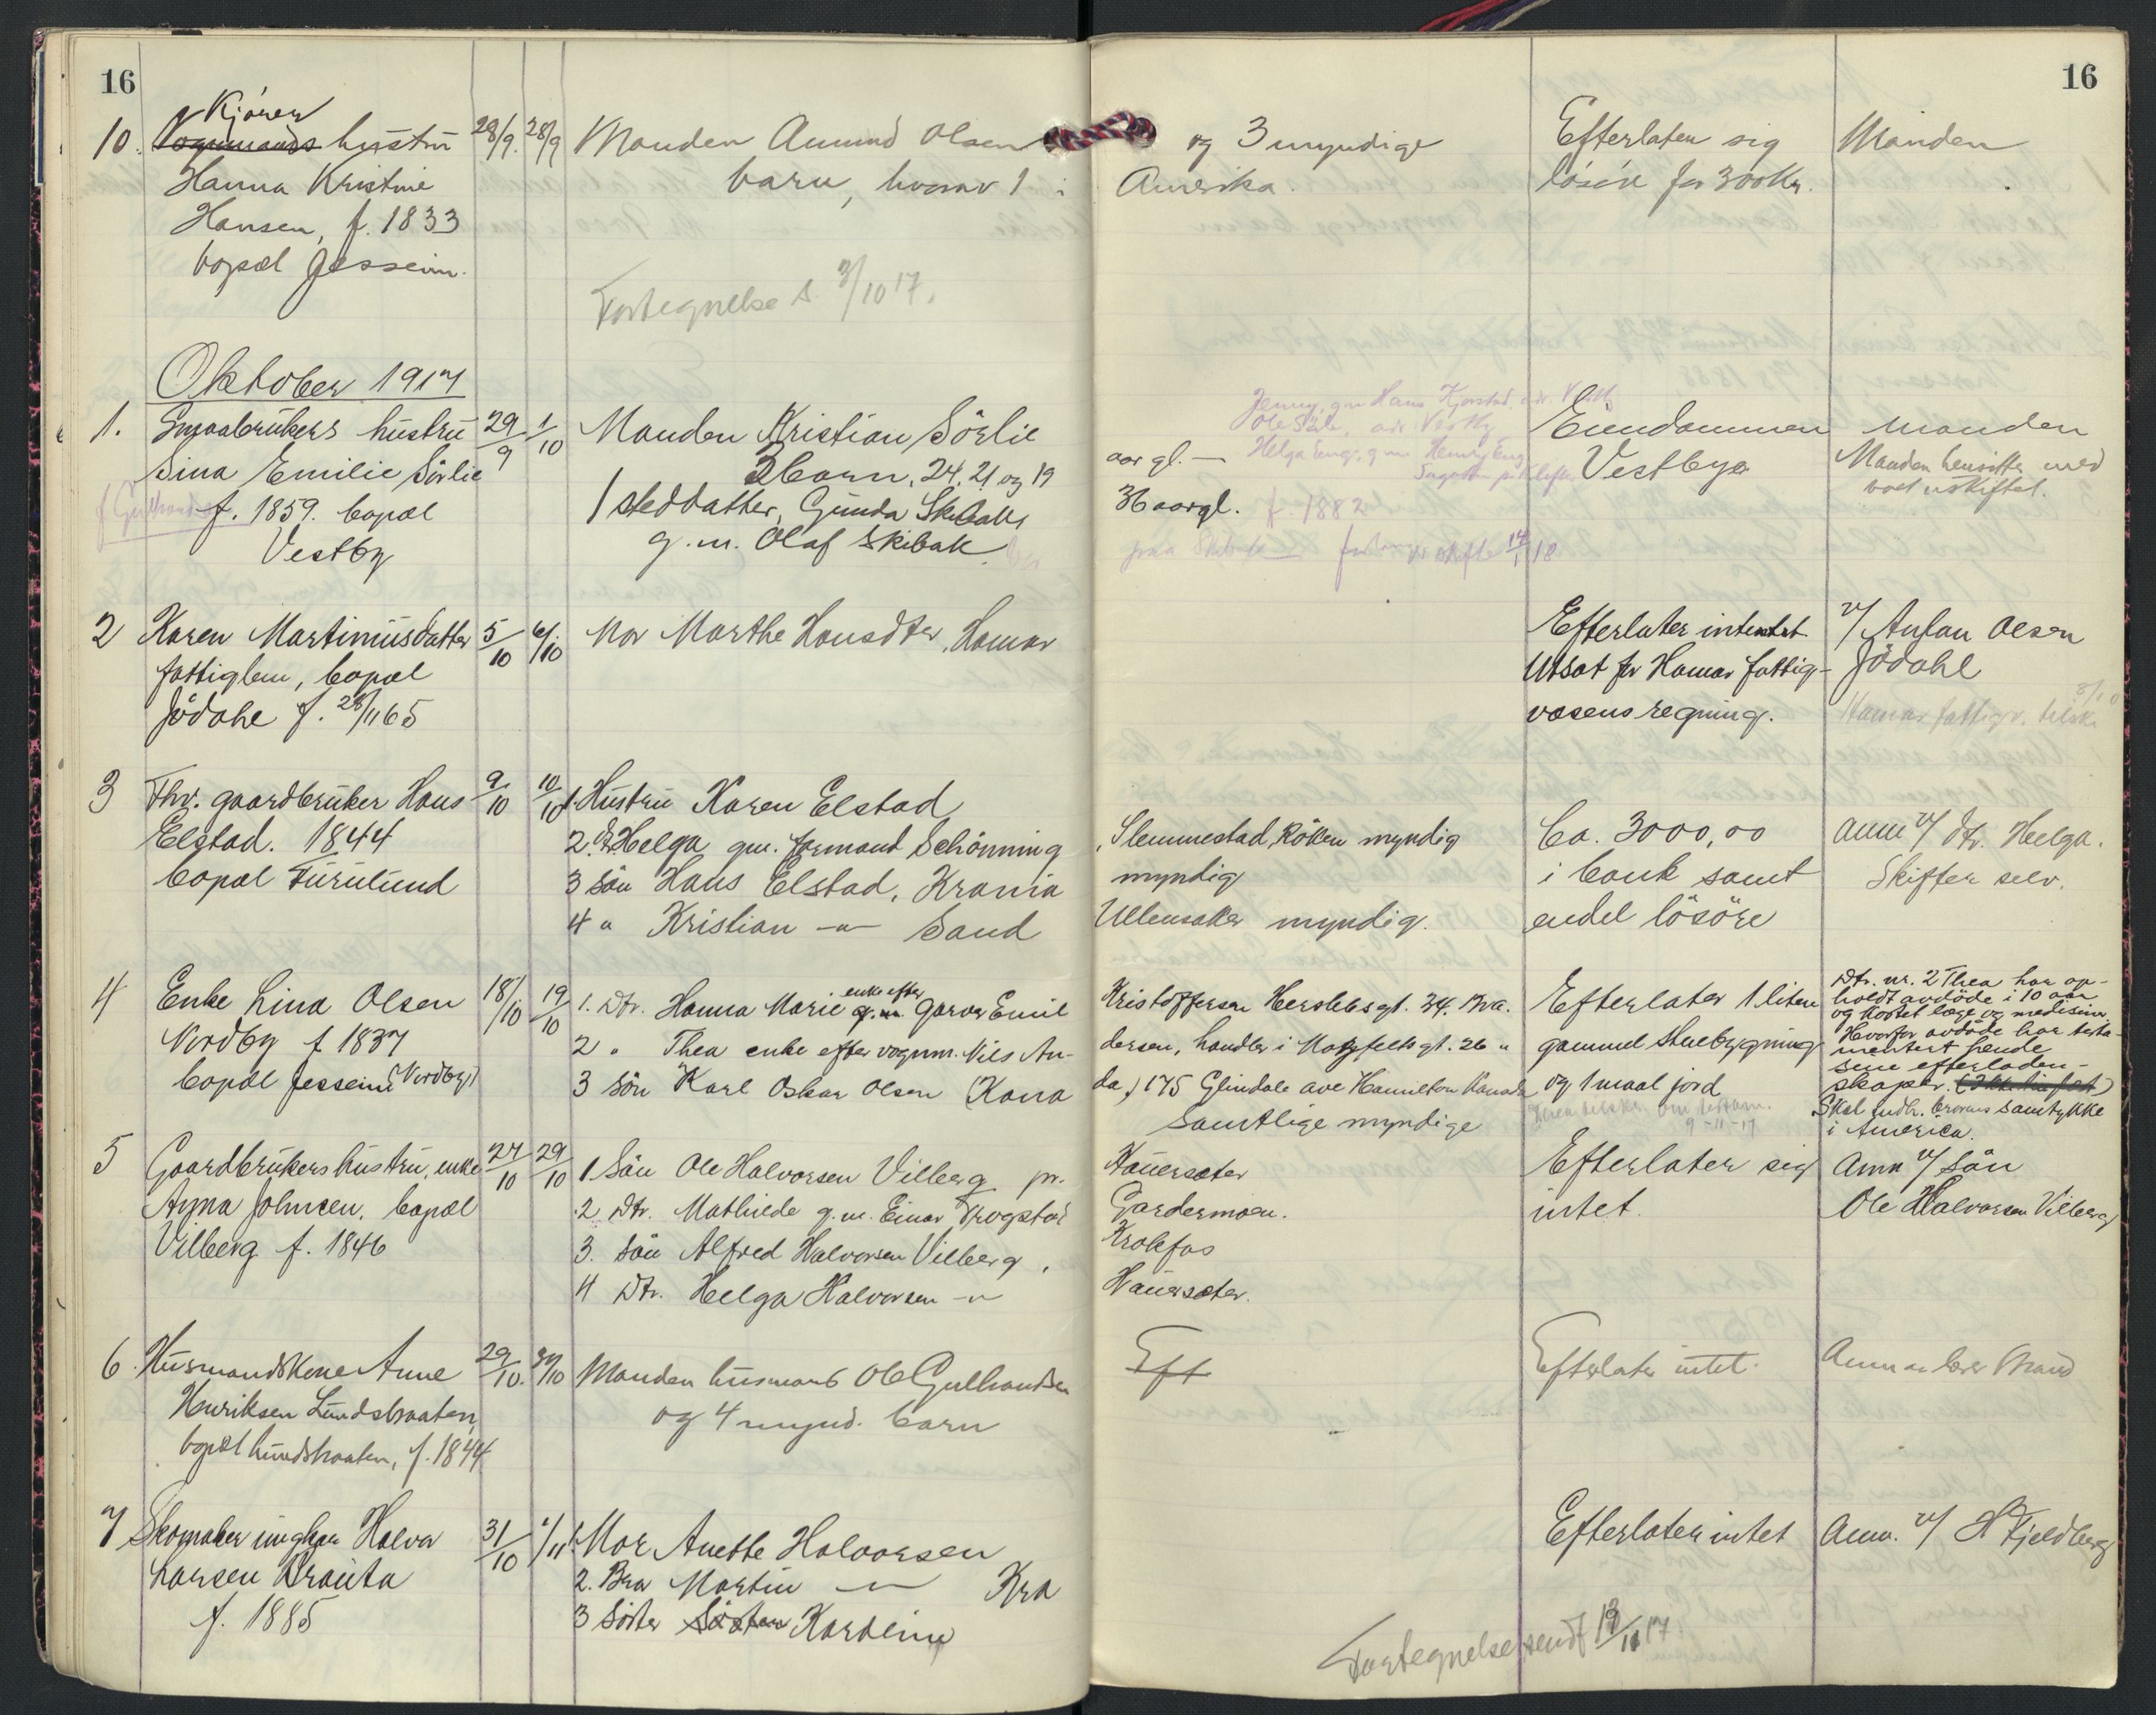 16
16
10. Kjörer
Vognmands hustru 28/9. 28/9 Manden Amund Olsen og 3 myndige Efterlater sig Manden
Hanna Kristine barn, hvorav 1 i Amerika. lösöre for 300 Kr.
Hansen, f. 1833
bopæl Jesseim.
Fortegnelse s. 3/10 17.
Oktober 1917
1. Smaabrukers hustru 29/9 1/10 Manden Kristian Sörlie Eiendommen Manden
Sina Emilie Sörlie 3 barn, 24, 21 og 19 aar gl. — Vestbye Manden hensitter med
f. 1859. bopæl 1 steddatter, Gunda Skibakk 36 aar gl. f. 1882 boet uskiftet.
Vestby g.m. Olaf Skibak
Jenny, gm Hans
Helga
14/1 18
2 Karen Martinusdatter 5/10 6/10 Mor Marthe Hansdter, Hamar Efterlater intet v/ Anton Olsen
fattiglem, bopæl Utsat for Hamar fattig- Jödahl
Jödahl f. 28/11 65 væsens regning. Hamar fattigv. tilskr.
3 Fhv. gaardbruker Hans 9/10 10/10 1. Hustru Karen Elstad
Elstad. 1844 2. Dtr. Helga gm. formand Schönning, Slemmestad, Röken myndig Ca. 3000,00 anm v/ dtr. Helga.
bopæl Furulund 3 sön Hans Elstad, Krania myndig i bank samt Skifter selv.
4 " Kristian —"— Sand Ullensaker myndig. endel lösöre
4 Enke Lina Olsen 18/10 19/10 1. Dtr. Hanna Marie enke efter g.m. garver Emil Kristoffersen Herslebsgt. 34. Kra. Efterlater 1 liten
Nordby f 1837 2 " Thea enke efter vognm. Nils Andersen, handler i Motzfeldts gt. 26 " gammel stuebygning
bopæl Jesseim (Nordby) 3 sön Karl Oskar Olsen (Kanada) 175 Glindale ave Hamilton Kanada og 1 maal jord
Samtlige myndige
9-11-17
Dtr. nr. 2 Thea har op-
holdt avdöde i 10 aar
og kostet læge og medisin.
Hvorfor avdöde har testa-
mentert hende
sine efterladen-
skaper.
Skal indh. brorens samtykke
i America.
5 Gaardbrukers hustru, enke 27/10 29/10 1. Sön Ole Halvorsen Vilberg pr. Hauersæter Efterlater sig Anm v/ sön
Anna Johnsen, bopæl 2 Dtr. Mathilde g.m. Einar Trogstad Gardermoen. intet. Ole Halvorsen Vilberg
Vilberg f. 1846 3. Sön Alfred Halvorsen Vilberg, Krokfos
4 Dtr. Helga Halvorsen —"— Hauersæter.
6. Husmandskone Anne 29/10. 30/10 Manden husmand Ole Gulbrandsen Eft Efterlater intet.
Henriksen Lundsbraaten, og 4 mynd. barn
bopæl Lundsbraaten, f. 1844
7 Skomaker ungkar Halvor 31/10 1/11 1. Mor Anette Halvorsen Efterlater intet Anm. v/ H Fjeldberg
Larsen Brauta 2. Bror Martin —"— Kra
f. 1885 3 Söster Söster Kardine
Fortegnelse sendt 13/11 17.